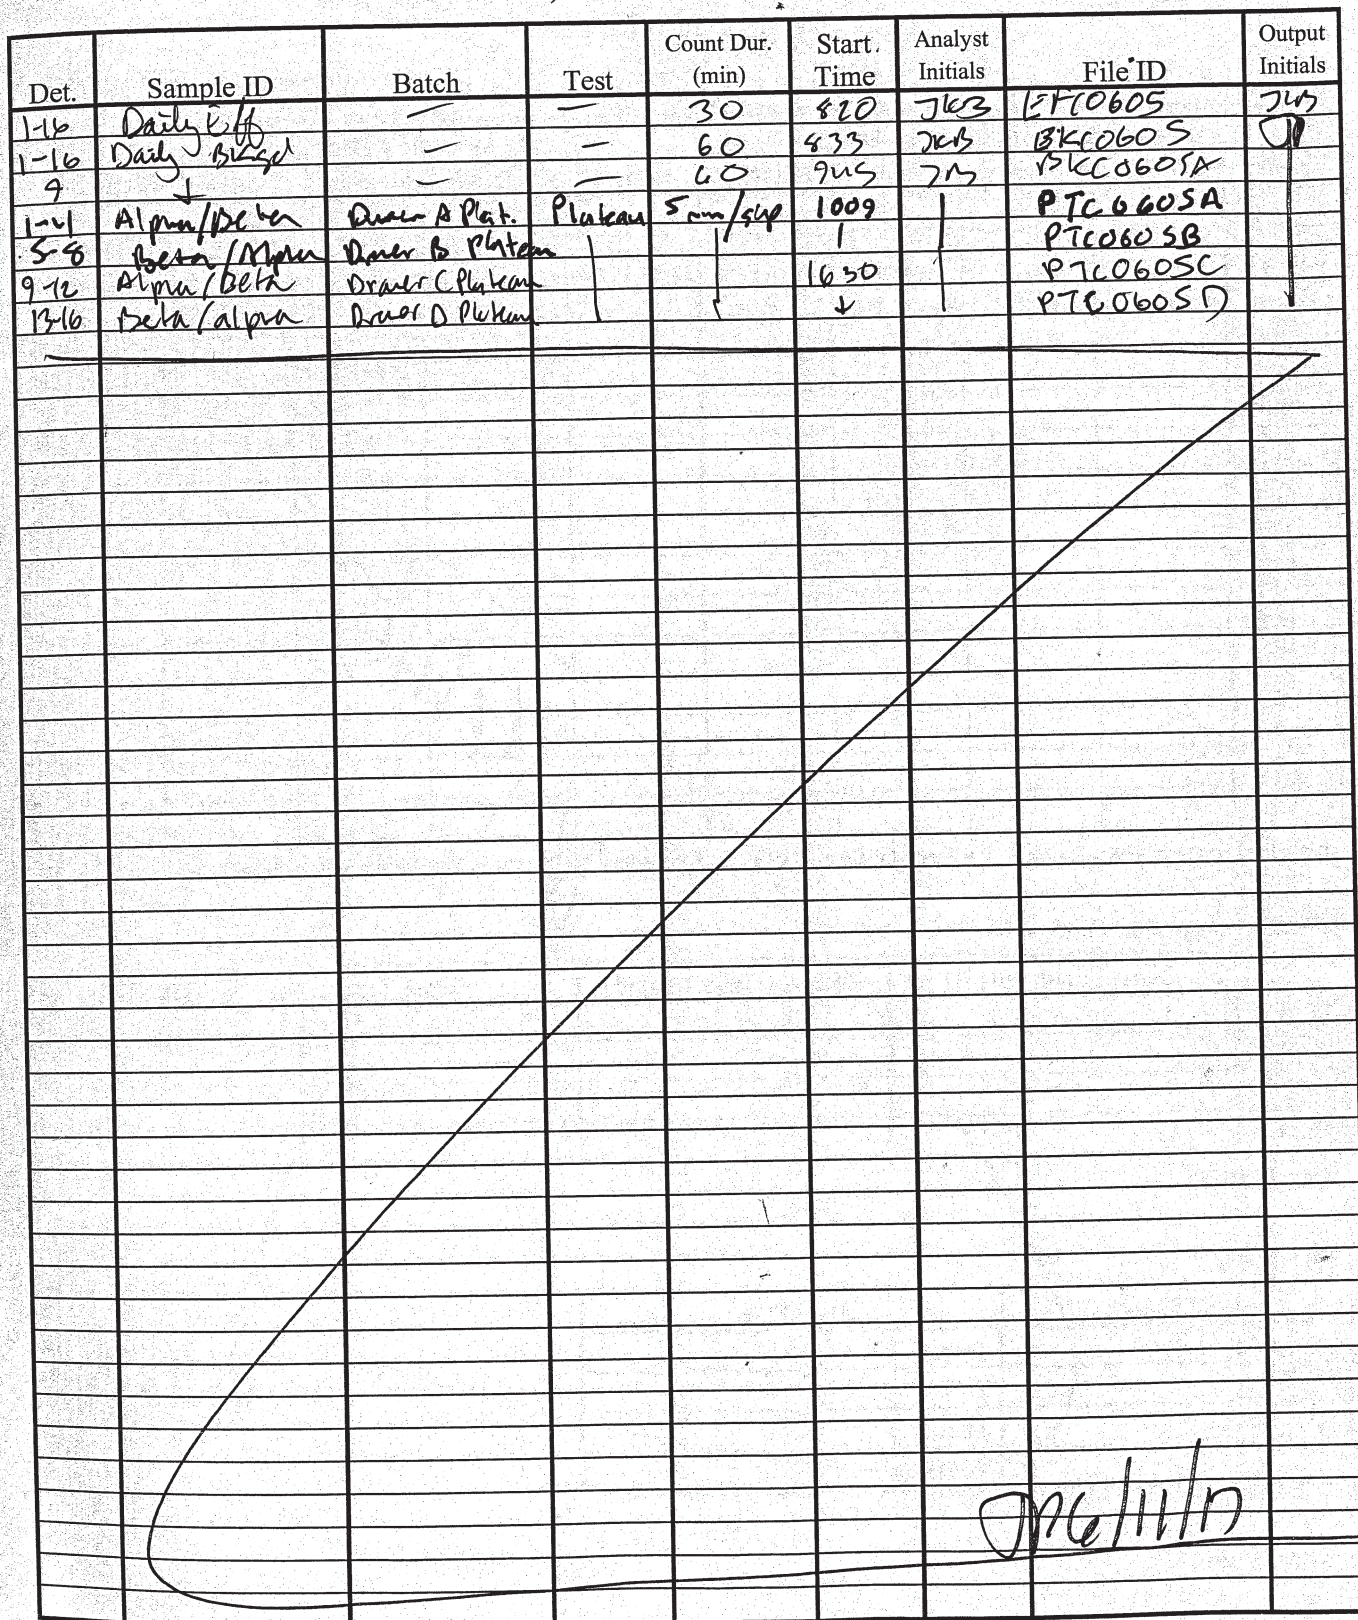 Det. Sample ID Batch Test Count Dur. (min) Start Time Analyst Initials File ID Output Initials
1-16 Daily Eff — — 30 820 JKB EFC0605 JKB
1-16 Daily Bkgd — — 60 833 JKB BKC0605
9 ↓ — — 60 945 BKC0605A
1-4 Alpha/Beta Drawer A Plat. Plateau 5 min/ 1009 PTC0605A
5-8 Beta/Alpha Drawer B Plateau PTC0605B
9-12 Alpha/Beta Drawer C Plateau 1630 PTC0605C
13-16 Beta/alpha Drawer D Plateau ↓ PTC0605D
6/11/17